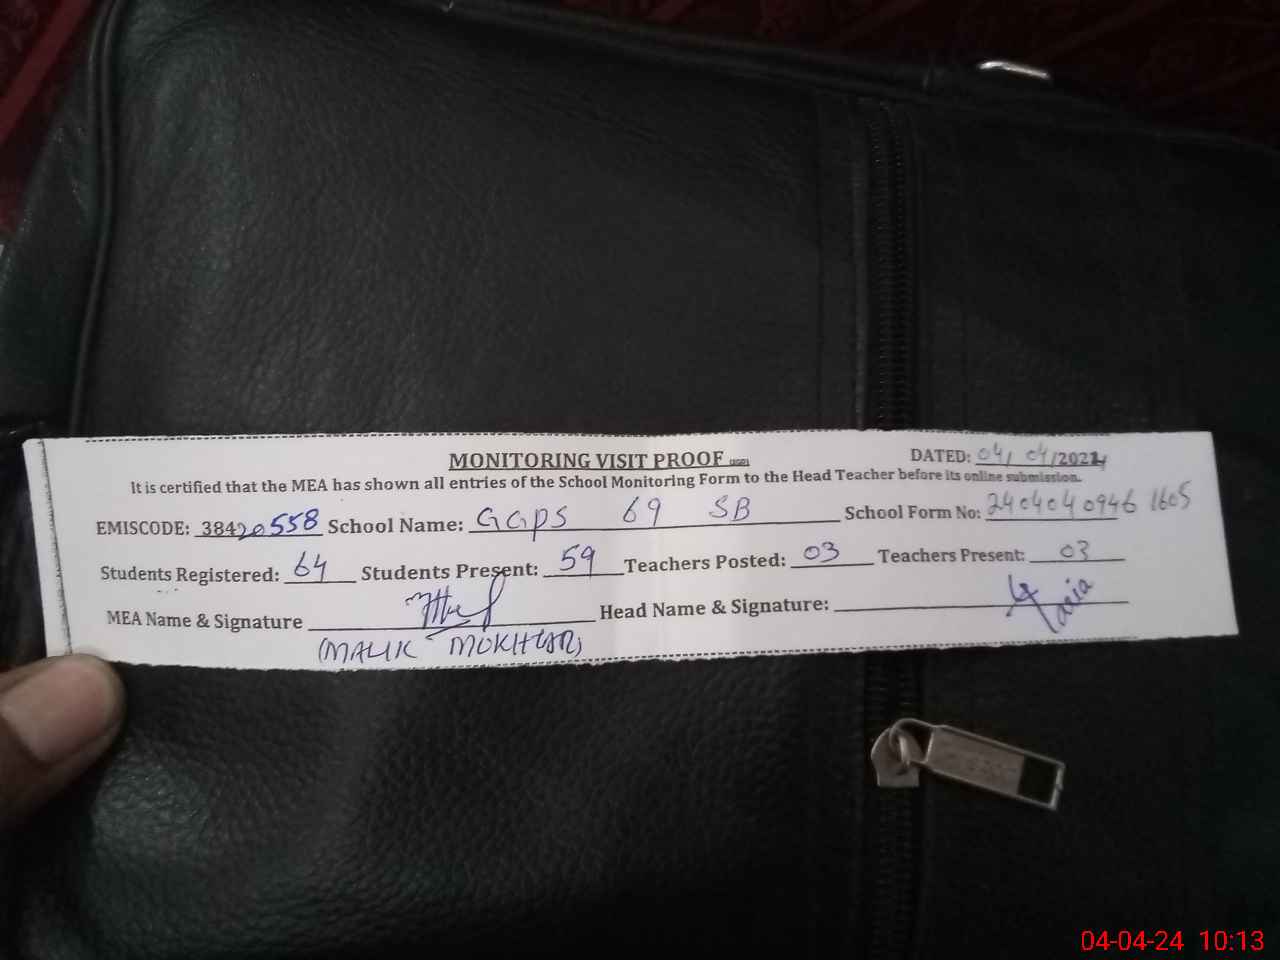 MONITORING VISIT PROOF
DATED: 04/04/2024
It is certified that the MEA has shown all entries of the School Monitoring Form to the Head Teacher before its online submission.
EMISCODE: 38420558 School Name: GGPS 69 SB School Form No: 2404040946 1605
Students Registered: 64 Students Present: 59 Teachers Posted: 03 Teachers Present: 03
MEA Name & Signature Head Name & Signature:
(MALIK MUKHTAR)
04-04-24 10:13